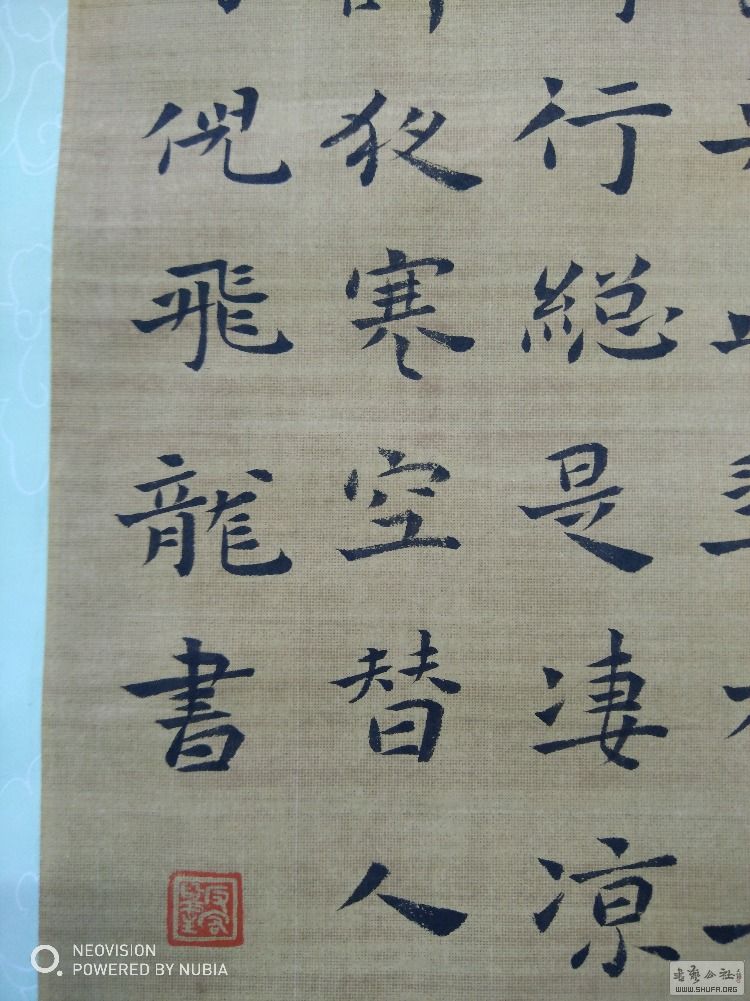 行總是凄凉
夜寒空替人
倪飛龍書
NEOVISION
POWERED BY NUBIA
书艺公社
WWW.SHUFA.ORG